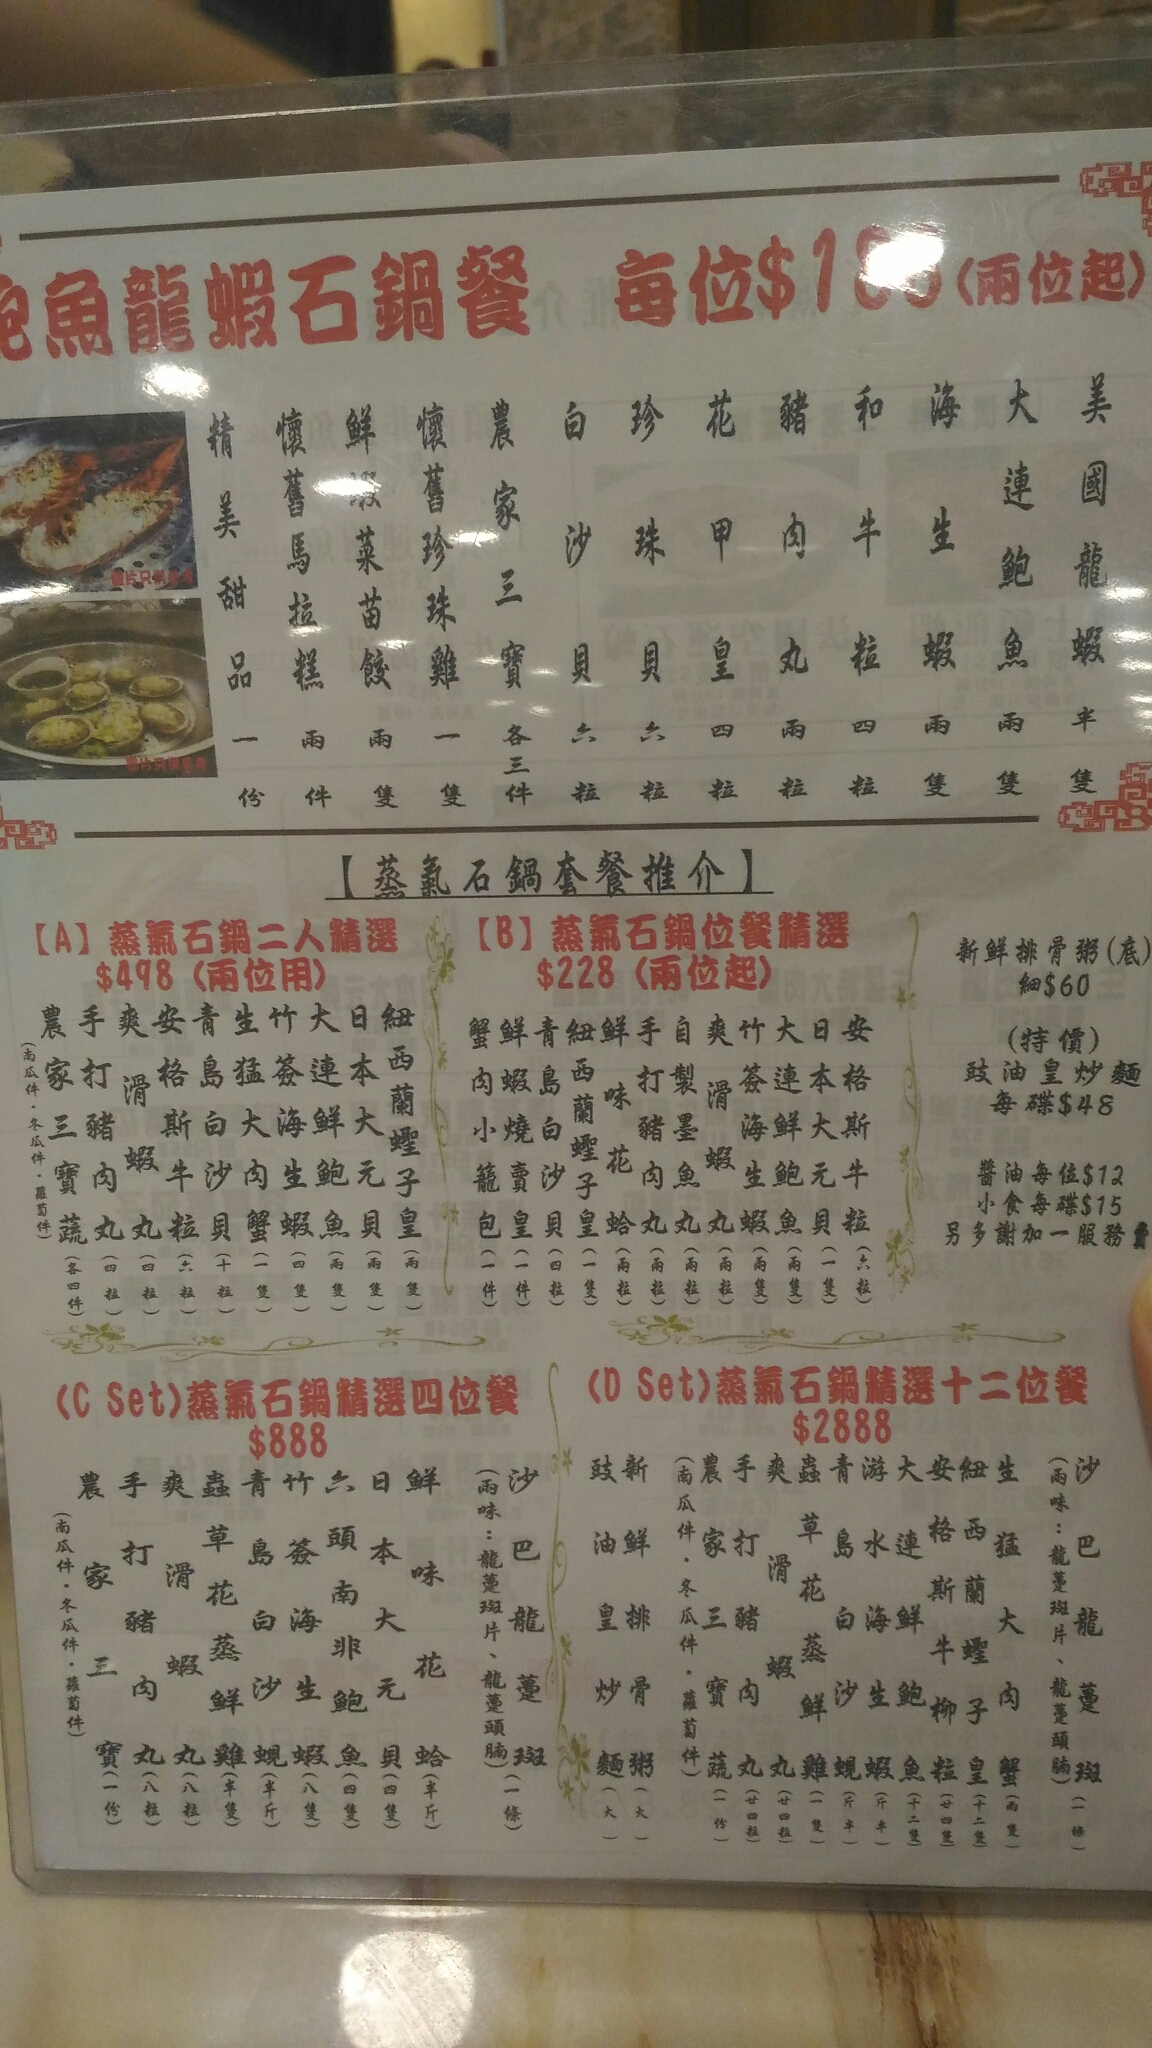 魚龍蝦石鍋餐 每位$1 (兩位起)
美國龍蝦半隻
大連鮑魚兩隻
海生蝦兩隻
和牛粒四粒
豬肉丸兩粒
花甲皇四粒
珍珠貝六粒
白沙貝六粒
農家三寶各三件
懷舊珍珠雞一隻
鮮蝦菜苗餃兩隻
懷舊馬拉糕兩件
精美甜品一份
圖片只供參考
圖片只供參考
【蒸氣石鍋套餐推介】
【A】蒸氣石鍋二人精選
$498 (兩位用)
紐西蘭蟶子皇(兩隻)
日本大元貝(兩隻)
大連鮮鮑魚(兩隻)
竹簽海生蝦(四隻)
生猛大肉蟹(一隻)
青島白沙貝(十粒)
安格斯牛粒(六粒)
爽滑蝦丸(四粒)
手打豬肉丸(四粒)
農家三寶蔬(各四件)
(南瓜件.冬瓜件.蘿蔔件)
【B】蒸氣石鍋位餐精選
$228 (兩位起)
安格斯牛粒(六粒)
日本大元貝(一隻)
大連鮮鮑魚(兩隻)
竹簽海生蝦(兩隻)
爽滑蝦丸(兩粒)
自製墨魚丸(兩粒)
手打豬肉丸(兩粒)
鮮味花蛤(兩粒)
紐西蘭蟶子皇(一隻)
青島白沙貝(四粒)
鮮蝦燒賣皇(一件)
蟹肉小籠包(一件)
新鮮排骨粥(底)
細$60
(特價)
豉油皇炒麵
每碟$48
醬油每位$12
小食每碟$15
另多謝加一服務
(C Set)蒸氣石鍋精選四位餐
$888
沙巴龍躉斑(一條)
(兩味:龍躉斑片、龍躉頭腩)
鮮味花蛤(半斤)
日本大元貝(四隻)
六頭南非鮑魚(四隻)
竹簽海生蝦(八隻)
青島白沙蜆(半斤)
蟲草花蒸鮮雞(半隻)
爽滑蝦丸(八粒)
手打豬肉丸(八粒)
農家三寶(一份)
(南瓜件.冬瓜件.蘿蔔件)
(D Set)蒸氣石鍋精選十二位餐
$2888
沙巴龍躉斑(一條)
(兩味:龍躉斑片、龍躉頭腩)
生猛大肉蟹(兩隻)
紐西蘭蟶子皇(十二隻)
安格斯牛柳粒(廿四隻)
大連鮮鮑魚(十二隻)
游水海生蝦(斤半)
青島白沙蜆(斤半)
蟲草花蒸鮮雞(一隻)
爽滑蝦丸(廿四粒)
手打豬肉丸(廿四粒)
農家三寶蔬(一份)
(南瓜件.冬瓜件.蘿蔔件)
新鮮排骨粥(大)
豉油皇炒麵(大)